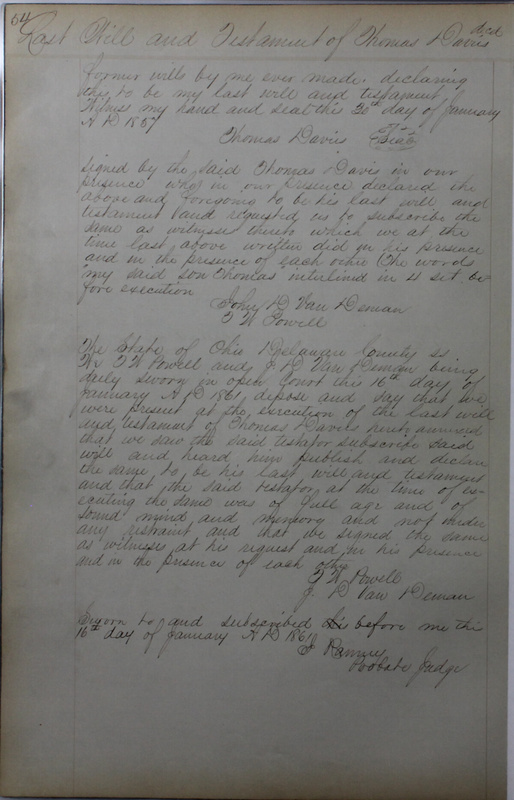 54
Last Will and Testament of Thomas Davis decd
former wills by me ever made. declaring
this to be my last will and testament,
Witness my hand and seal this 30th day of January
A D 1857
Thomas Davis Seal
Signed by the said Thomas Davis in our
presence who in our presence declared the
above and foregoing to be his last will and
testament and requested us to subscribe the
same as witnesses thereto which we at the
time last above written did in his presence
and in the presence of each other (the words
"my said son Thomas" interlined in 4 be-
fore execution
John D Van Deman
T W Powell
The State of Ohio Delaware County ss
We T W Powell and J D Van Deman being
duly sworn in open Court this 16th day of
January A D 1861, depose and say that we
were present at the execution of the last will
and testament of Thomas Davis hereto annexed
that we saw the said testator subscribe said
will and heard him publish and declare
the same to be his last will and testament
and that the said testator at the time of ex-
ecuting the same was of full age and of
sound mind and memory and not under
any restraint and that we signed the same
as witnesses at his request and in his presence
and in the presence of each other
T W Powell
J. D Van Deman
Sworn to and subscribed before me this
16th day of January A D 1861
Probate Judge